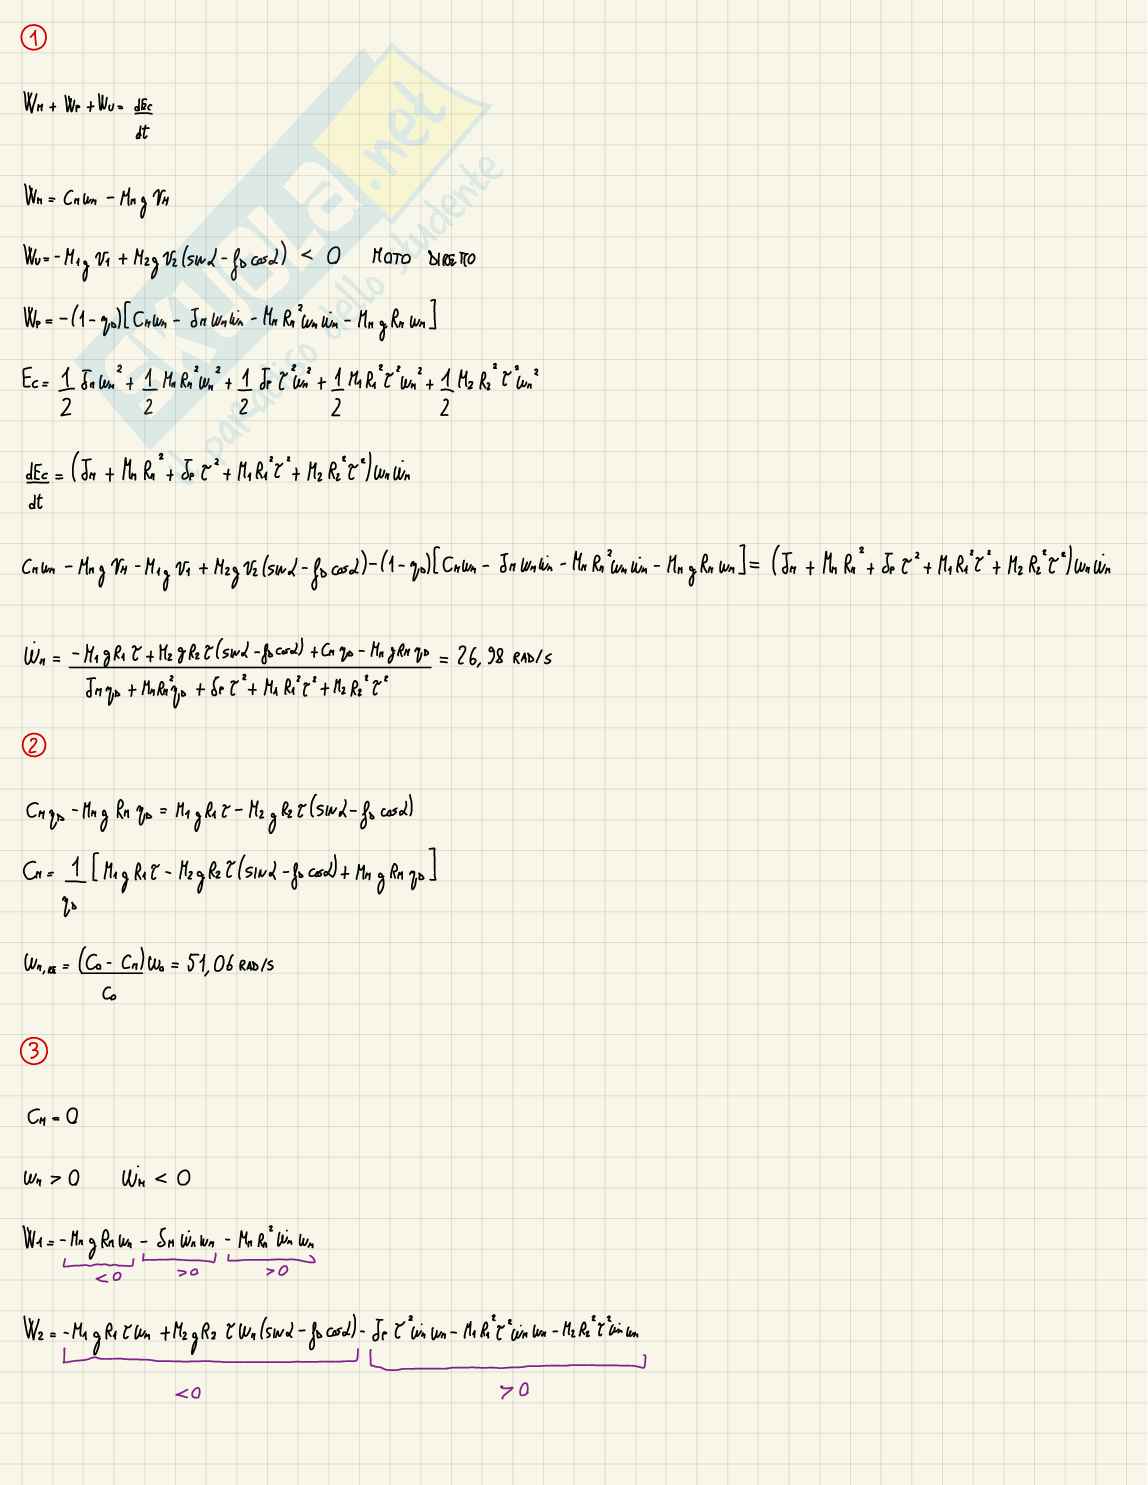 1
W_M + W_P + W_U = dEc/dt
W_M = C_M ω_M - M_M g v_M
W_U = - M_1 g v_1 + M_2 g v_2 (sin α - f_D cos α) < 0   MOTO DIRETTO
W_P = -(1 - η_D)[C_M ω_M - J_M ω_M ω̇_M - M_M R_M² ω_M ω̇_M - M_M g R_M ω_M]
Ec = 1/2 J_M ω_M² + 1/2 M_M R_M² ω_M² + 1/2 J_P τ² ω_M² + 1/2 M_1 R_1² τ² ω_M² + 1/2 M_2 R_2² τ² ω_M²
dEc/dt = (J_M + M_M R_M² + J_P τ² + M_1 R_1² τ² + M_2 R_2² τ²) ω_M ω̇_M
C_M ω_M - M_M g v_M - M_1 g v_1 + M_2 g v_2 (sin α - f_D cos α) - (1 - η_D)[C_M ω_M - J_M ω_M ω̇_M - M_M R_M² ω_M ω̇_M - M_M g R_M ω_M] = (J_M + M_M R_M² + J_P τ² + M_1 R_1² τ² + M_2 R_2² τ²) ω_M ω̇_M
ω̇_M = (- M_1 g R_1 τ + M_2 g R_2 τ (sin α - f_D cos α) + C_M η_D - M_M g R_M η_D) / (J_M η_D + M_M R_M² η_D + J_P τ² + M_1 R_1² τ² + M_2 R_2² τ²) = 26,98 RAD/S
2
C_M η_D - M_M g R_M η_D = M_1 g R_1 τ - M_2 g R_2 τ (sin α - f_D cos α)
C_M = 1/η_D [M_1 g R_1 τ - M_2 g R_2 τ (sin α - f_D cos α) + M_M g R_M η_D]
ω_M,RE = (C_0 - C_M)/C_0 ω_0 = 51,06 RAD/S
3
C_M = 0
ω_M > 0   ω̇_M < 0
W_1 = - M_M g R_M ω_M - J_M ω̇_M ω_M - M_M R_M² ω̇_M ω_M
<0   >0   >0
W_2 = - M_1 g R_1 τ ω_M + M_2 g R_2 τ ω_M (sin α - f_D cos α) - J_P τ² ω̇_M ω_M - M_1 R_1² τ² ω̇_M ω_M - M_2 R_2² τ² ω̇_M ω_M
<0   >0
SKUOLA.net
il paradiso dello studente